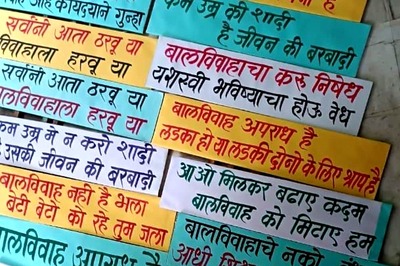 आहे कायद्याने गुन्हा
सर्वांनी आता ठरवू या
विवाहाला हरवू या
सर्वांनी आता ठरवू या
बालविवाहाला हरवू या
कम उम्र मे न करो शादी
उसकी जीवन की बरबादी
बालविवाह नही है भला
बेटी बेटो को रहे तुम जला
बालविवाह अपराध है
कम उम्र की शादी
है जीवन की बरबादी
बालविवाहाचा करू निषेध
यशस्वी भविष्याचा होऊ वेध
बालविवाह अपराध है
लडका हो या लडकी दोनो के लिए श्राप है
आओ मिलकर बढाए कदम
बालविवाह को मिटाए हम
बालविवाहाचे नको
आधी